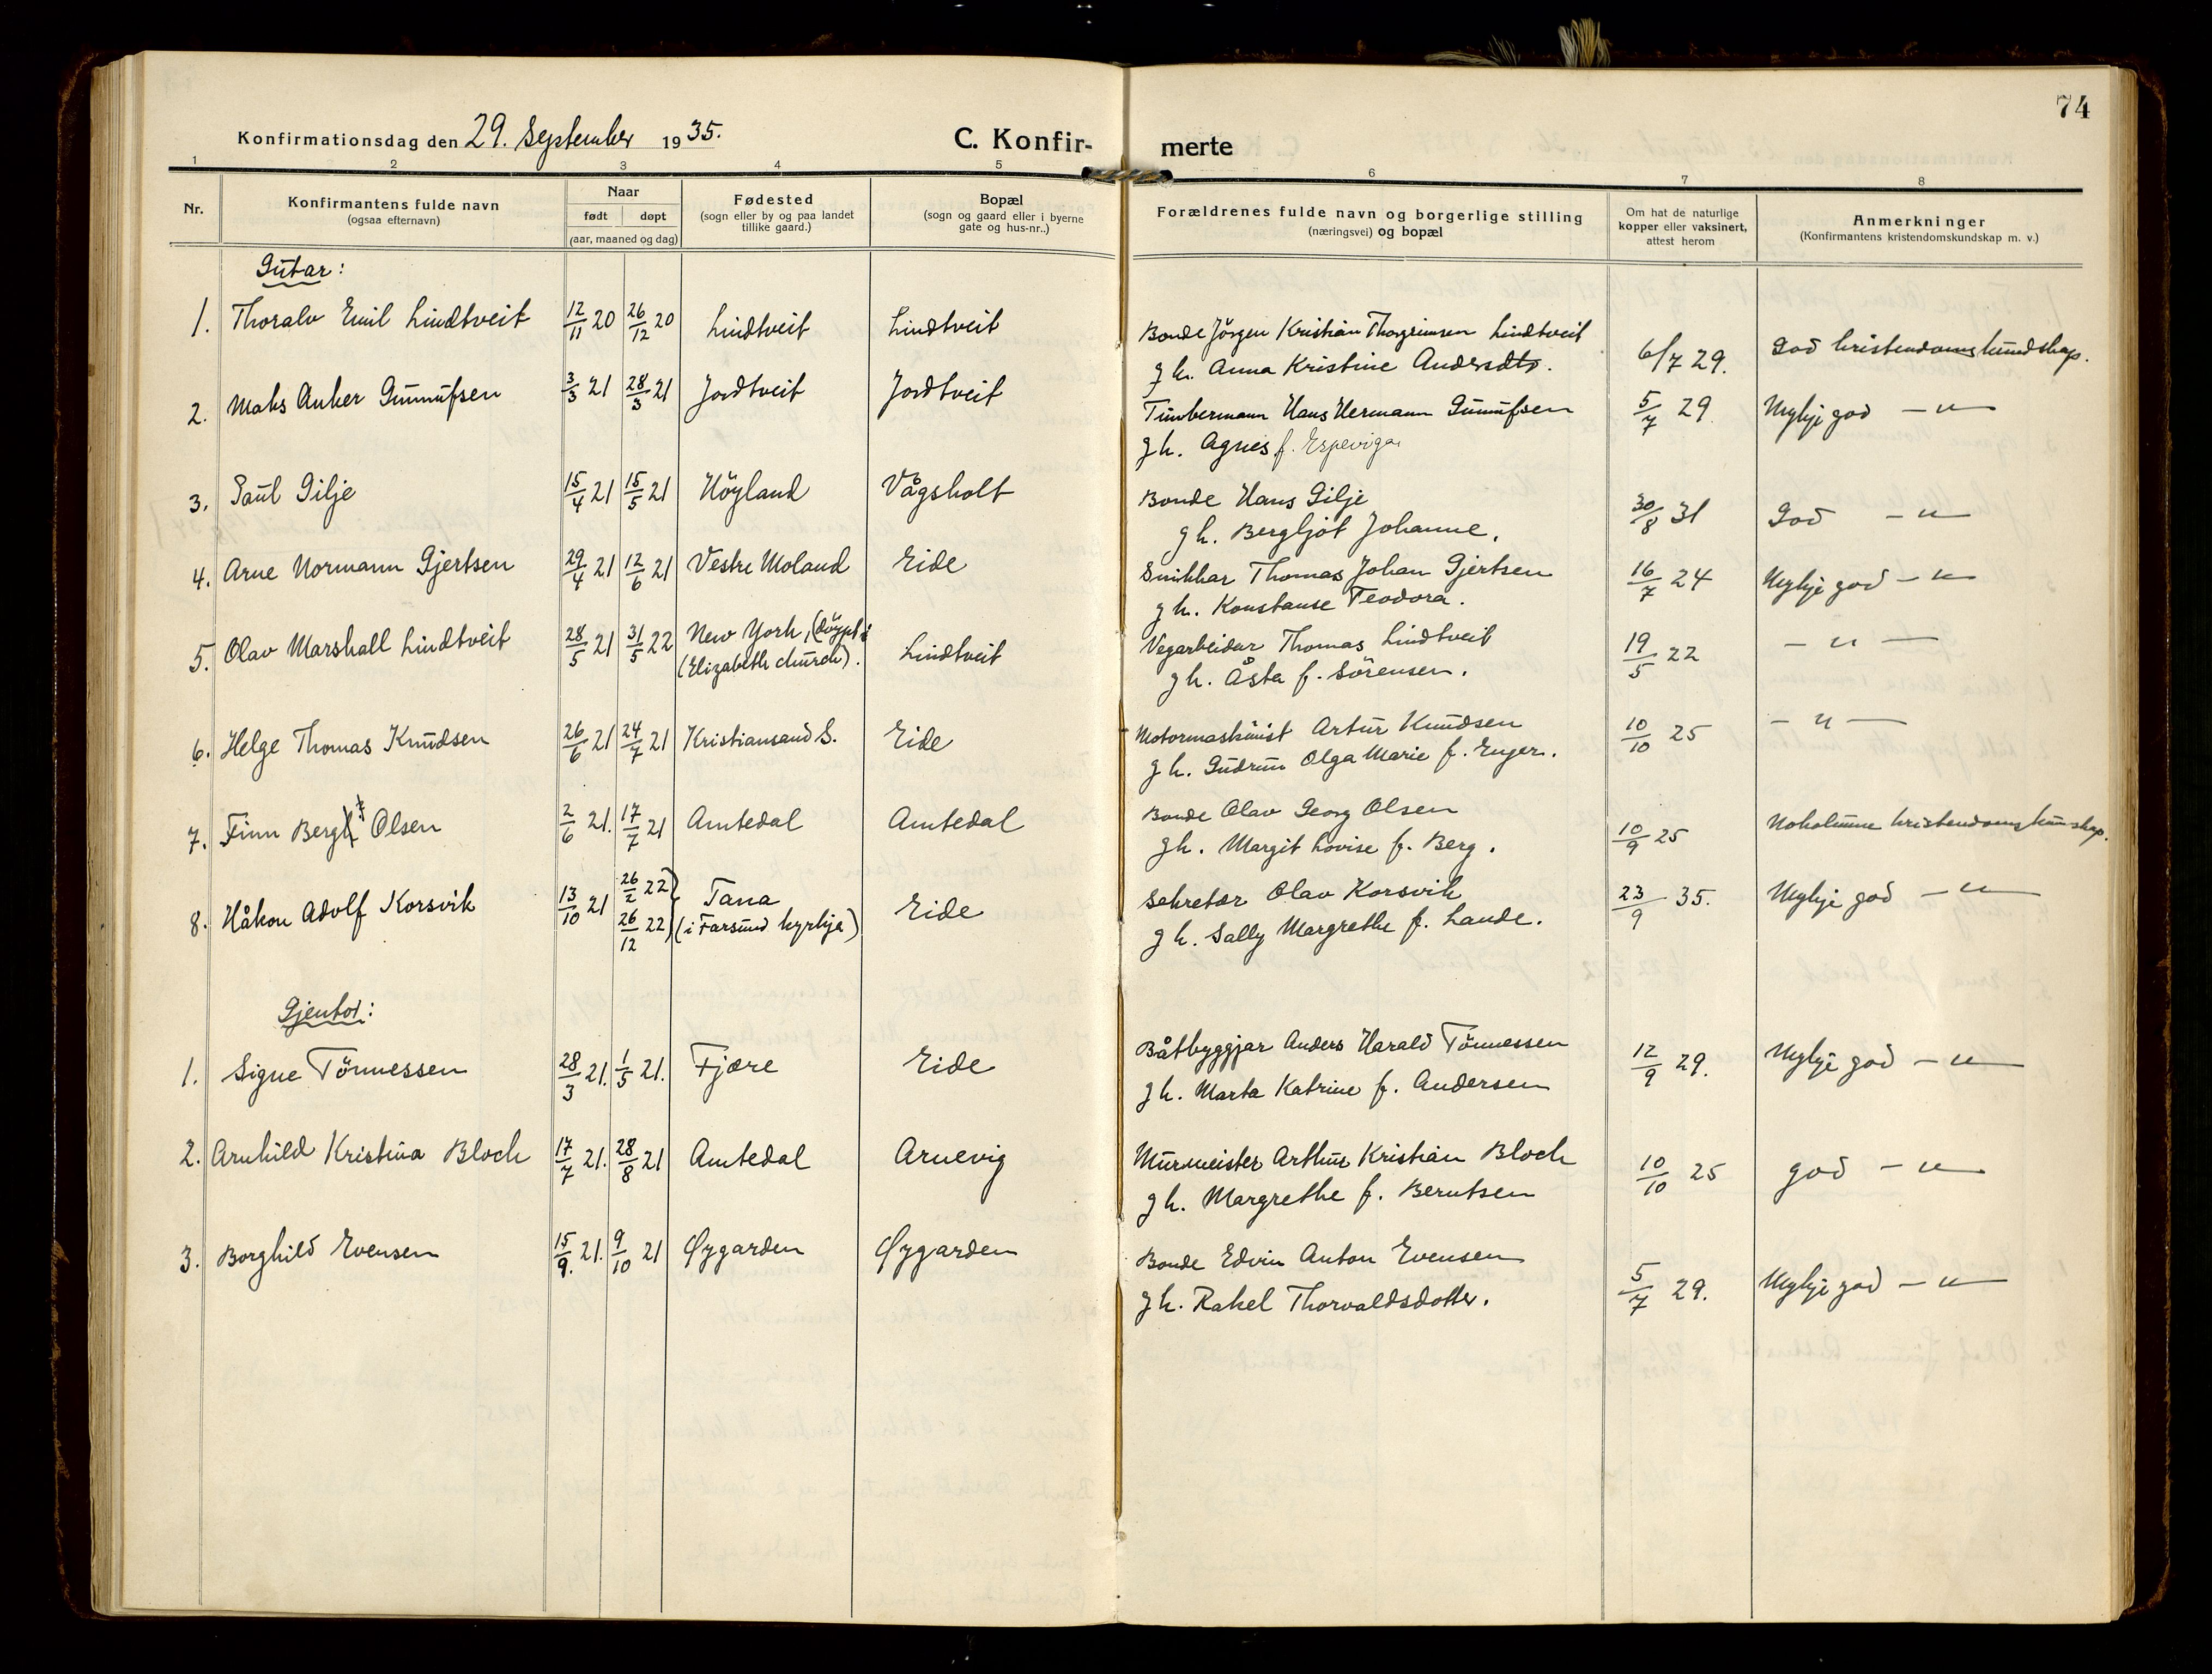 74
Konfirmationsdag den 29. September 1935.
C. Konfir-
merte
1 2 3 4 5 6 7 8
Nr.
Konfirmantens fulde navn
(ogsaa efternavn)
Naar
født døpt
(aar, maaned og dag)
Fødested
(sogn eller by og paa landet
tillike gaard.)
Bopæl
(sogn og gaard eller i byerne
gate og hus-nr..)
Forældrenes fulde navn og borgerlige stilling
(næringsvei) og bopæl
Om hat de naturlige
kopper eller vaksinert,
attest herom
Anmerkninger
(Konfirmantens kristendomskundskap m. v.)
Gutar:
1. Thoralv Emil Lindtveit 12/11 20 26/12 20 Lindtveit Lindtveit Bonde Jörgen Kristian Thorgrimsen Lindtveit
g h. Anna Kristine Andersdtr. 6/7 29. God kristendomskundskap.
2. Maks Anker Gunnufsen 3/3 21 28/3 21 Jordtveit Jordtveit Timbermann Hans Hermann Gunnufsen 5/7 29 Mykje god — " —
g h. Agnes f. Espeviga
3. Paul Gilje 15/4 21 15/5 21 Höyland Vågsholt Bonde Hans Gilje 30/8 31 God — " —
g h. Bergljot Johanne.
4. Arne Normann Gjertsen 29/4 21 12/6 21 Vestre Moland Eide Snikkar Thomas Johan Gjertsen 16/7 24 Mykje god — " —
g h. Konstanse Teodora.
5. Olav Marshall Lindtveit 28/5 21 31/5 22 New York, (döypt i
(Elizabeth church). Lindtveit Vegarbeidar Thomas Lindtveit 19/5 22 — " —
g h. Åsta f. Sörensen.
6. Helge Thomas Knudsen 26/6 21 24/7 21 Kristiansand S. Eide Motormaskinist Artur Knudsen 10/10 25 — " —
g h. Gudrun Olga Marie f. Enger.
7. Finn Berg Olsen 2/6 21. 17/7 21 Amtedal Amtedal Bonde Olav Georg Olsen 10/9 25 Nokolunne kristendomskunskap.
g h. Margit Lovise f. Berg.
8. Håkon Adolf Korsvik 13/10 21 26/2 22
26/12 22 Tana
(i Farsund kyrkje) Eide Sekretær Olav Korsvik 23/9 35. Mykje god — " —
g h. Sally Margrethe f. Lande.
Gjentor:
1. Signe Tönnessen 28/3 21. 1/5 21. Fjære Eide Båtbyggjar Anders Harald Tönnessen 12/9 29. Mykje god — " —
g h. Marta Katrine f. Andersen
2. Arnhild Kristina Bloch 17/7 21. 28/8 21 Amtedal Arnevig Murmeister Arthur Kristian Bloch 10/10 25 god — " —
g h. Margrethe f. Berntsen
3. Borghild Evensen 15/9. 21. 9/10 21 Øygarden Øygarden Bonde Edvin Anton Evensen 5/7 29. Mykje god — " —
g h. Rakel Thorvaldsdotter.